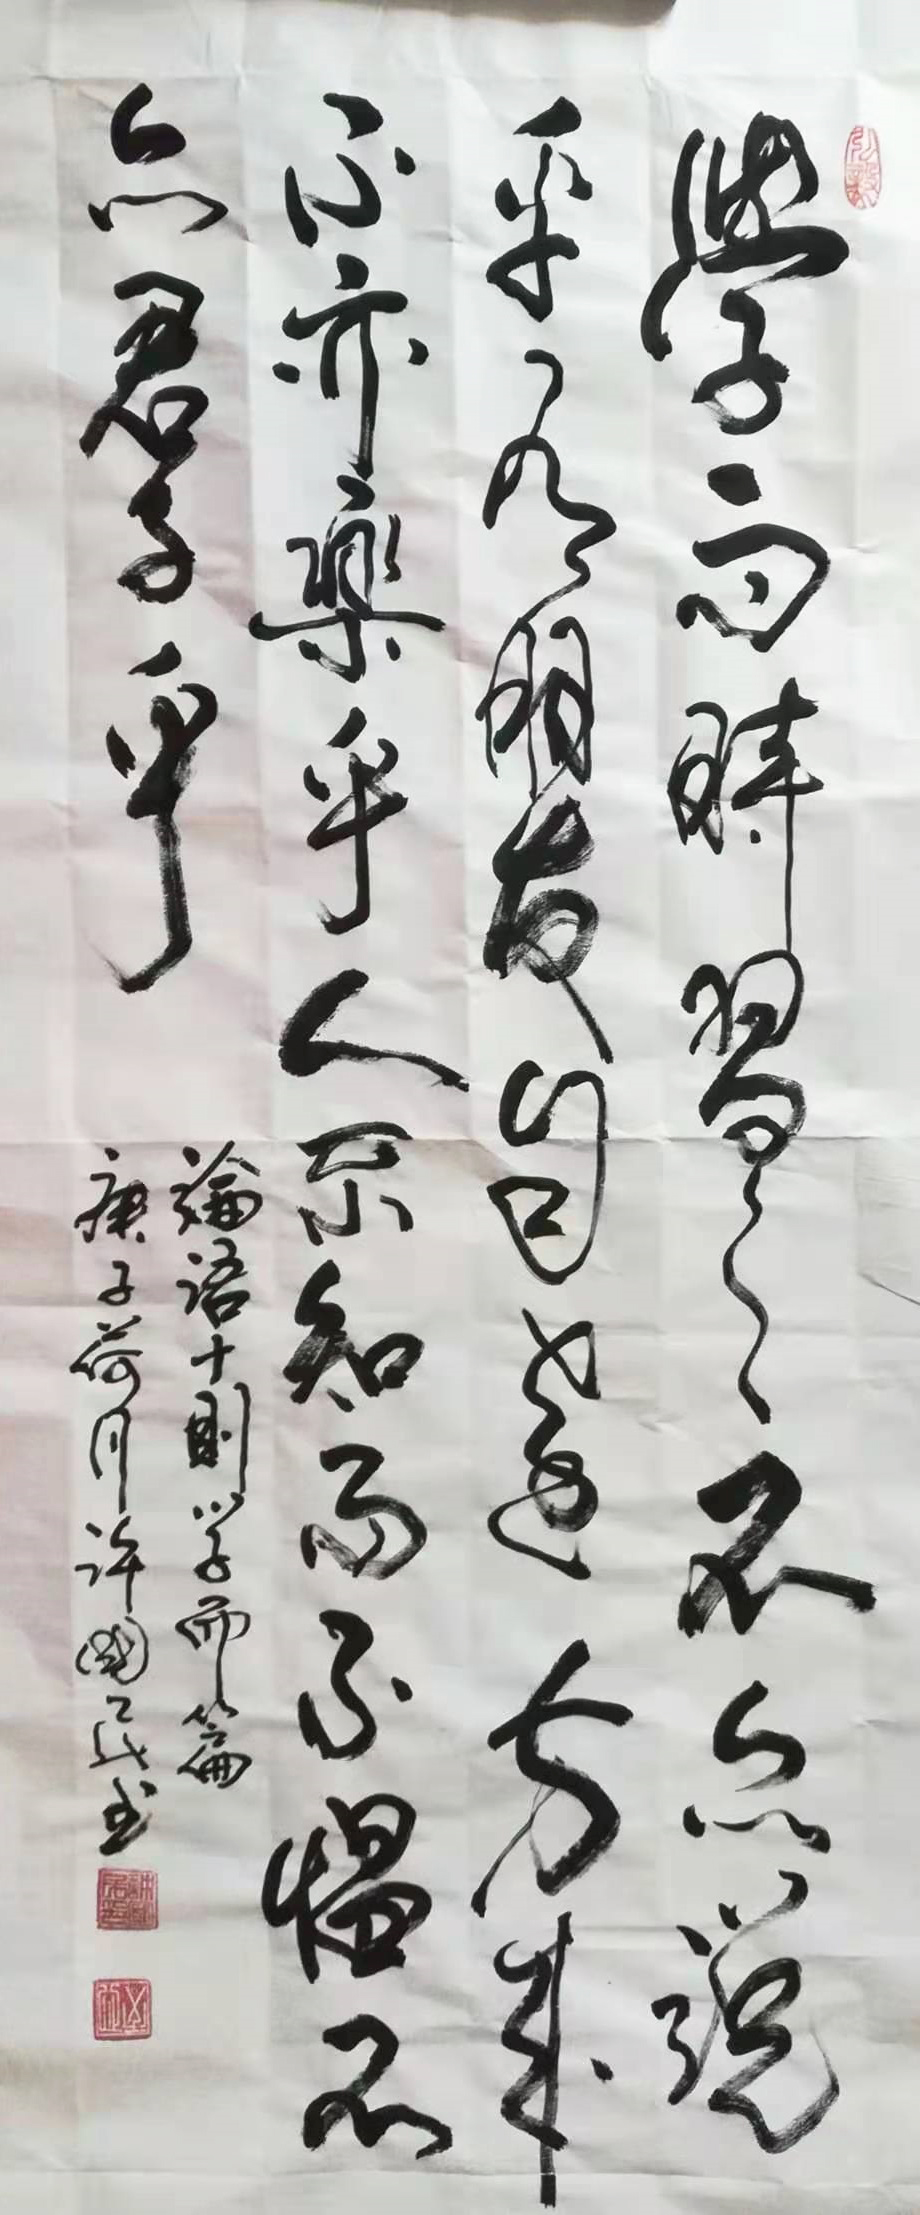 學而時習之不亦說
乎有朋友自遠方來
不亦樂乎人不知而不慍不
亦君子乎
論語十則學而篇
庚子荷月許國民书